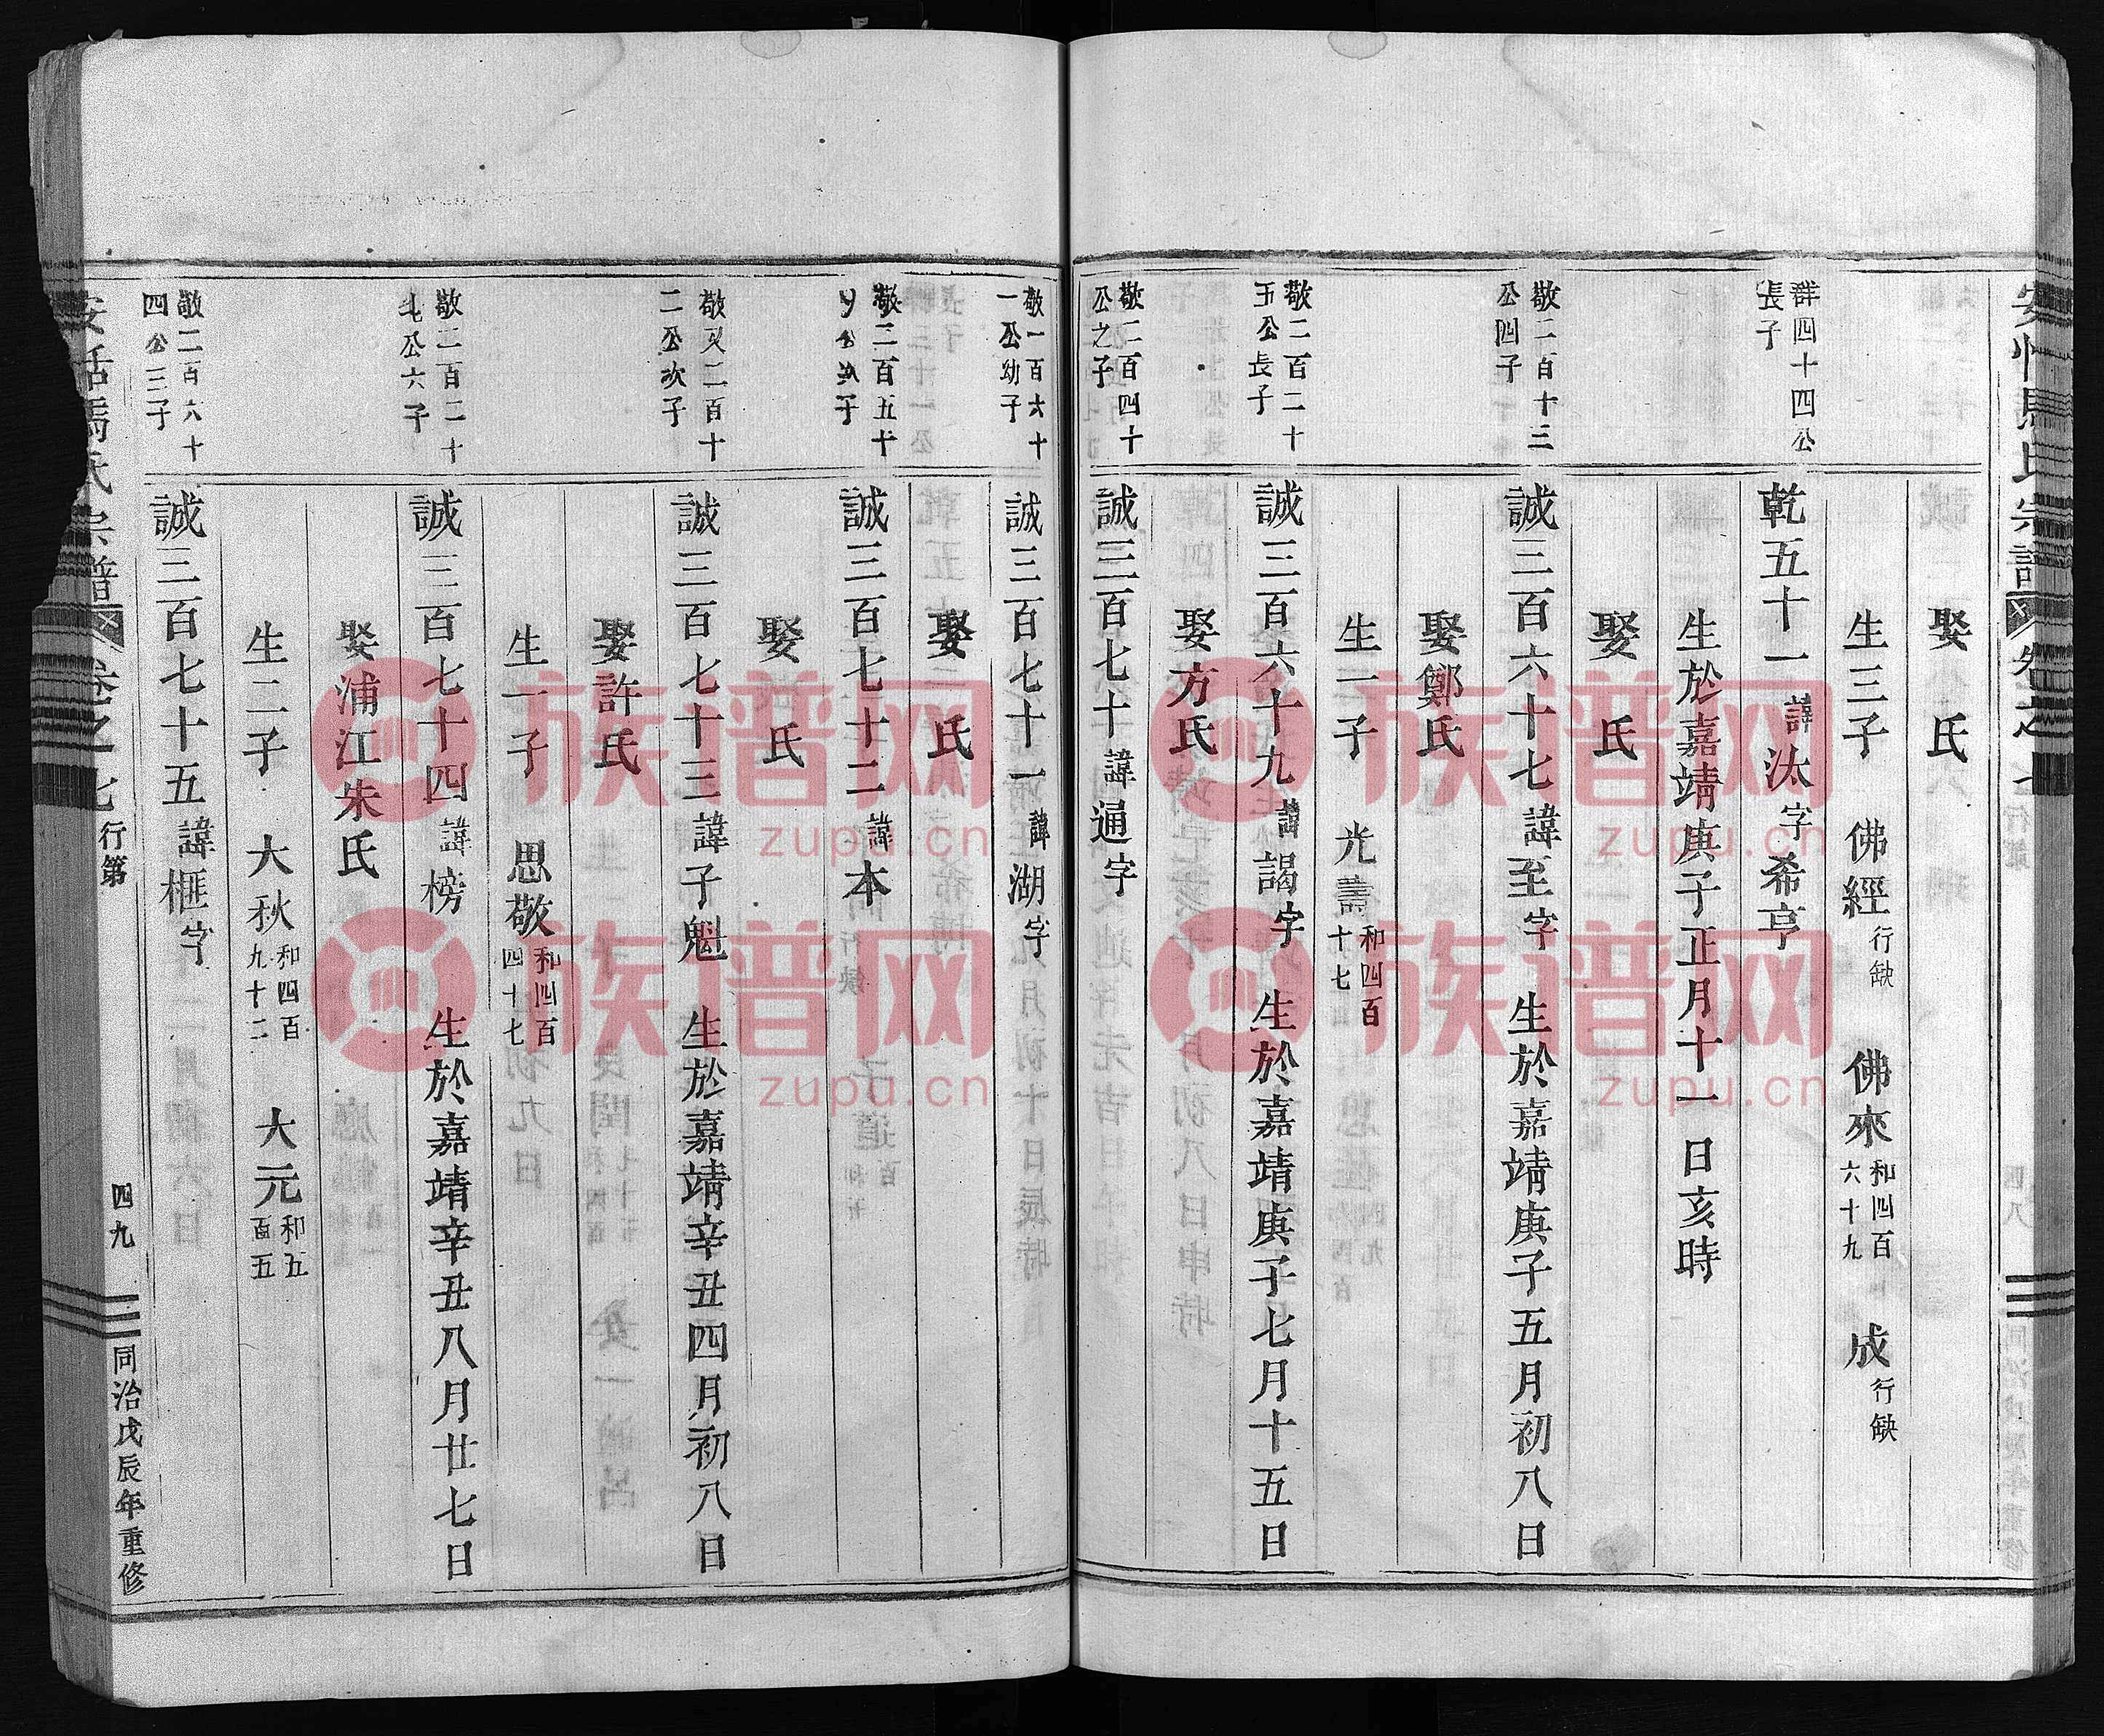 娶 氏
生三子 佛經行缺 佛來和四百六十九 成行缺
群四十四公長子
乾五十一諱汰字希亨
生於嘉靖庚子正月十一日亥時
娶 氏
敬二百十三公四子
誠三百六十七諱至字 生於嘉靖庚子五月初八日
娶鄭氏
生一子 光壽和四百十七
敬二百二十五公長子
誠三百六十九諱謁字 生於嘉靖庚子七月十五日
娶方氏
敬二百四十公之子
誠三百七十諱通字
敬一百六十一公幼子
誠三百七十一諱湖字
娶 氏
敬二百五十
誠三百七十二諱本
娶 氏
敬又二百十二公次子
誠三百七十三諱子魁 生於嘉靖辛丑四月初八日
娶許氏
生一子 思敬和四百四十七
敬二百二十七公六子
誠三百七十四諱榜 生於嘉靖辛丑八月廿七日
娶浦江朱氏
生二子 大秋和四百九十二 大元和五百五
敬二百六十四公三子
誠三百七十五諱框字
氏宗譜 卷之七 行第 四九 同治戊辰年重修
族谱网
zupu.cn
族谱网
zupu.cn
族谱网
zupu.cn
族谱网
zupu.cn